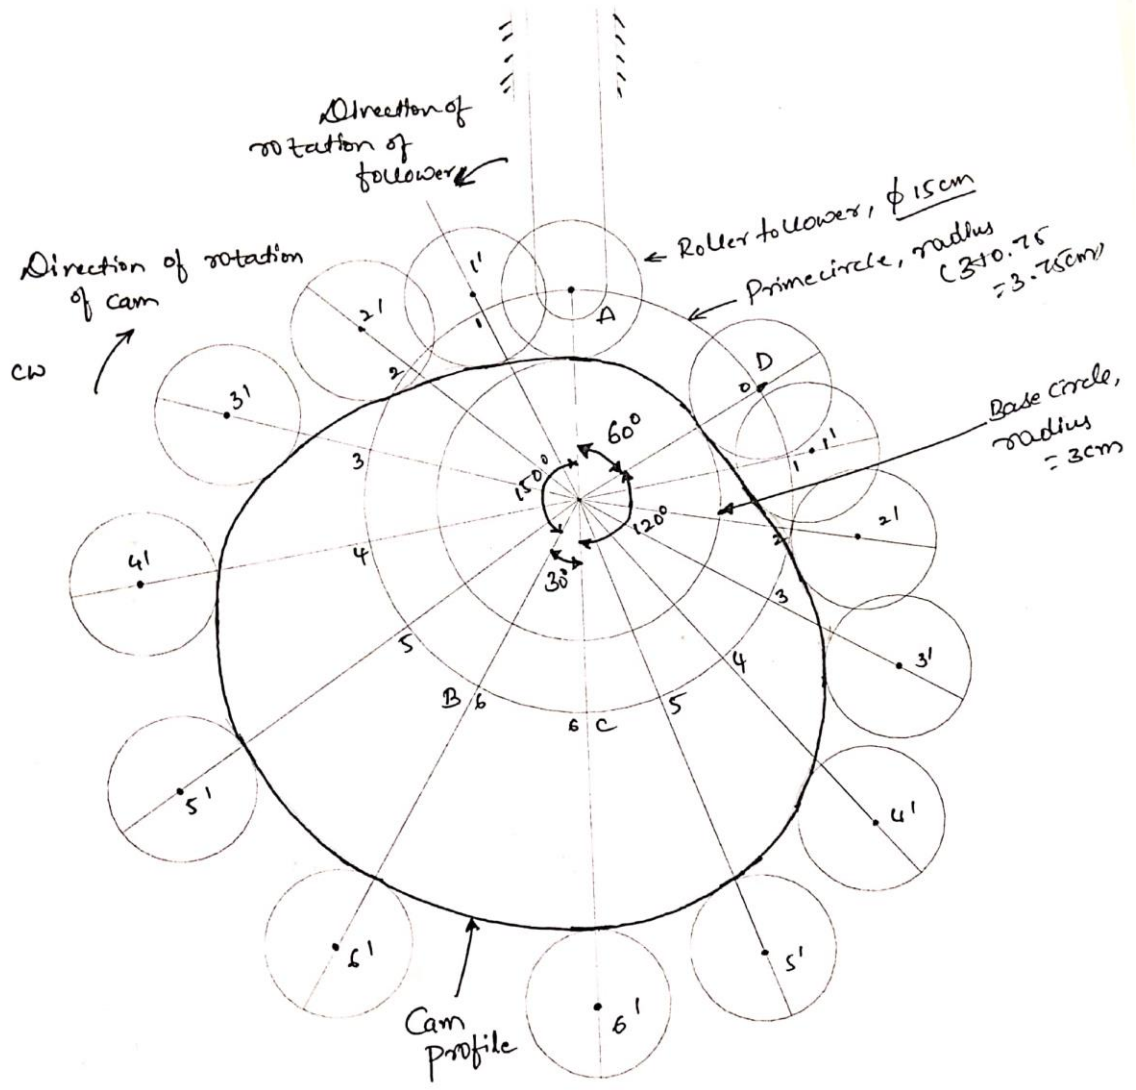 Direction of
rotation of
follower
Direction of rotation
of cam
CW
Roller follower, ϕ 15cm
Prime circle, radius
(3+0.75
=3.75cm)
Base circle,
radius
=3cm
1'
2'
3'
4'
5'
6'
1
2
3
4
5
B 6
A
D
0
1
1'
2
2'
3
3'
4
4'
5
5'
6 C
6'
60°
150°
120°
30°
Cam
profile